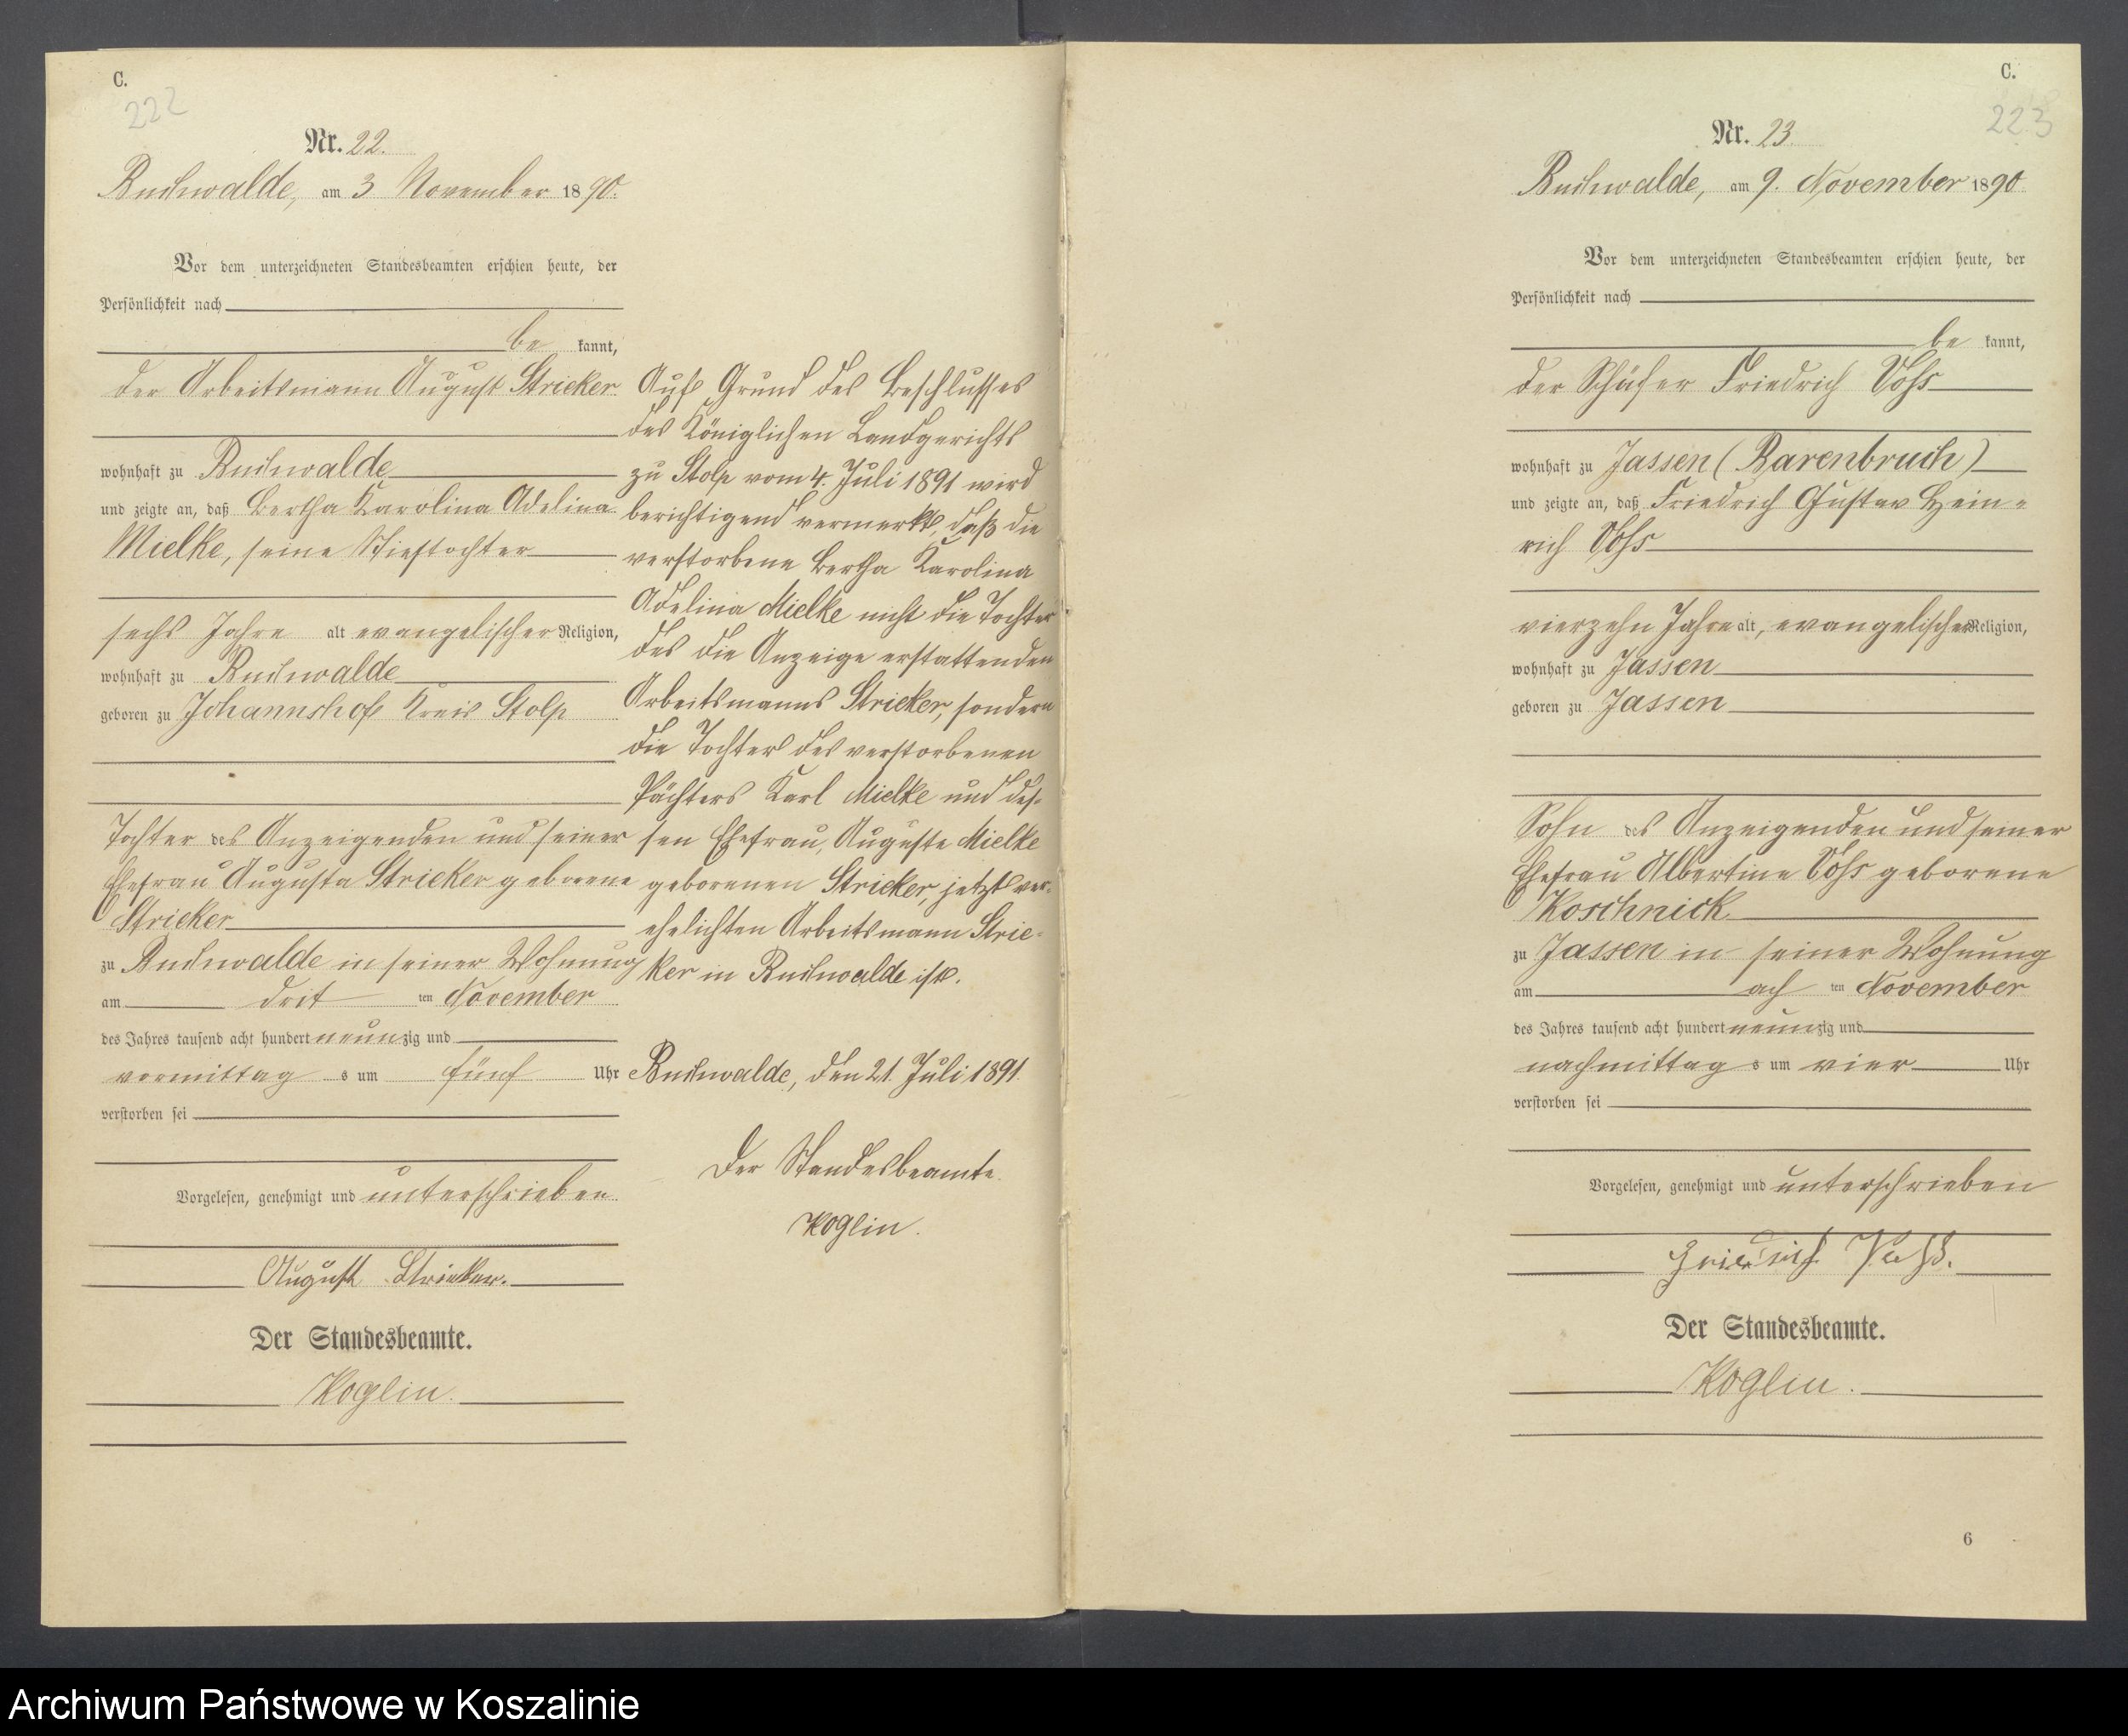 C.
222
Nr. 22.
Buchwalde, am 3 November 1890.
Vor dem unterzeichneten Standesbeamten erschien heute, der
Persönlichkeit nach
be kannt,
der Arbeitsmann August Stricker
wohnhaft zu Buchwalde
und zeigte an, daß Bertha Karolina Adelina
Mielke, seine Stieftochter
sechs Jahre alt evangelischer Religion,
wohnhaft zu Buchwalde
geboren zu Johannshof Kreis Stolp
Tochter des Anzeigenden und seiner
Ehefrau Augusta Stricker geborene
Stricker
zu Buchwalde in seiner Wohnung
am drit ten November
des Jahres tausend acht hundert neunzig und
vormittag s um fünf Uhr
verstorben sei
Vorgelesen, genehmigt und unterschrieben
August Stricker.
Der Standesbeamte.
Koglin.
Auf Grund des Beschlusses
des Königlichen Landgerichts
zu Stolp vom 4. Juli 1891 wird
berichtigend vermerkt, daß die
verstorbene Bertha Karolina
Adelina Mielke nicht die Tochter
des die Anzeige erstattenden
Arbeitsmanns Stricker, sondern
die Tochter des verstorbenen
Pächters Karl Mielke und des-
sen Ehefrau, Auguste Mielke
geborenen Stricker, jetzt ver-
ehelichten Arbeitsmann Stric-
ker in Buchwalde ist.
Buchwalde, den 21. Juli 1891.
Der Standesbeamte.
Koglin.
C.
223
Nr. 23.
Buchwalde, am 9. November 1890
Vor dem unterzeichneten Standesbeamten erschien heute, der
Persönlichkeit nach
be kannt,
der Schäfer Friedrich Vohs
wohnhaft zu Jassen (Barenbruch)
und zeigte an, daß Friedrich Gustav Hein-
rich Vohs
vierzehn Jahre alt, evangelischer Religion,
wohnhaft zu Jassen
geboren zu Jassen
Sohn des Anzeigenden und seiner
Ehefrau Albertine Vohs geborene
Koschnick
zu Jassen in seiner Wohnung
am ach ten November
des Jahres tausend acht hundert neunzig und
nachmittag s um vier Uhr
verstorben sei
Vorgelesen, genehmigt und unterschrieben
Friedrich Vohs.
Der Standesbeamte.
Koglin.
6
Archiwum Państwowe w Koszalinie